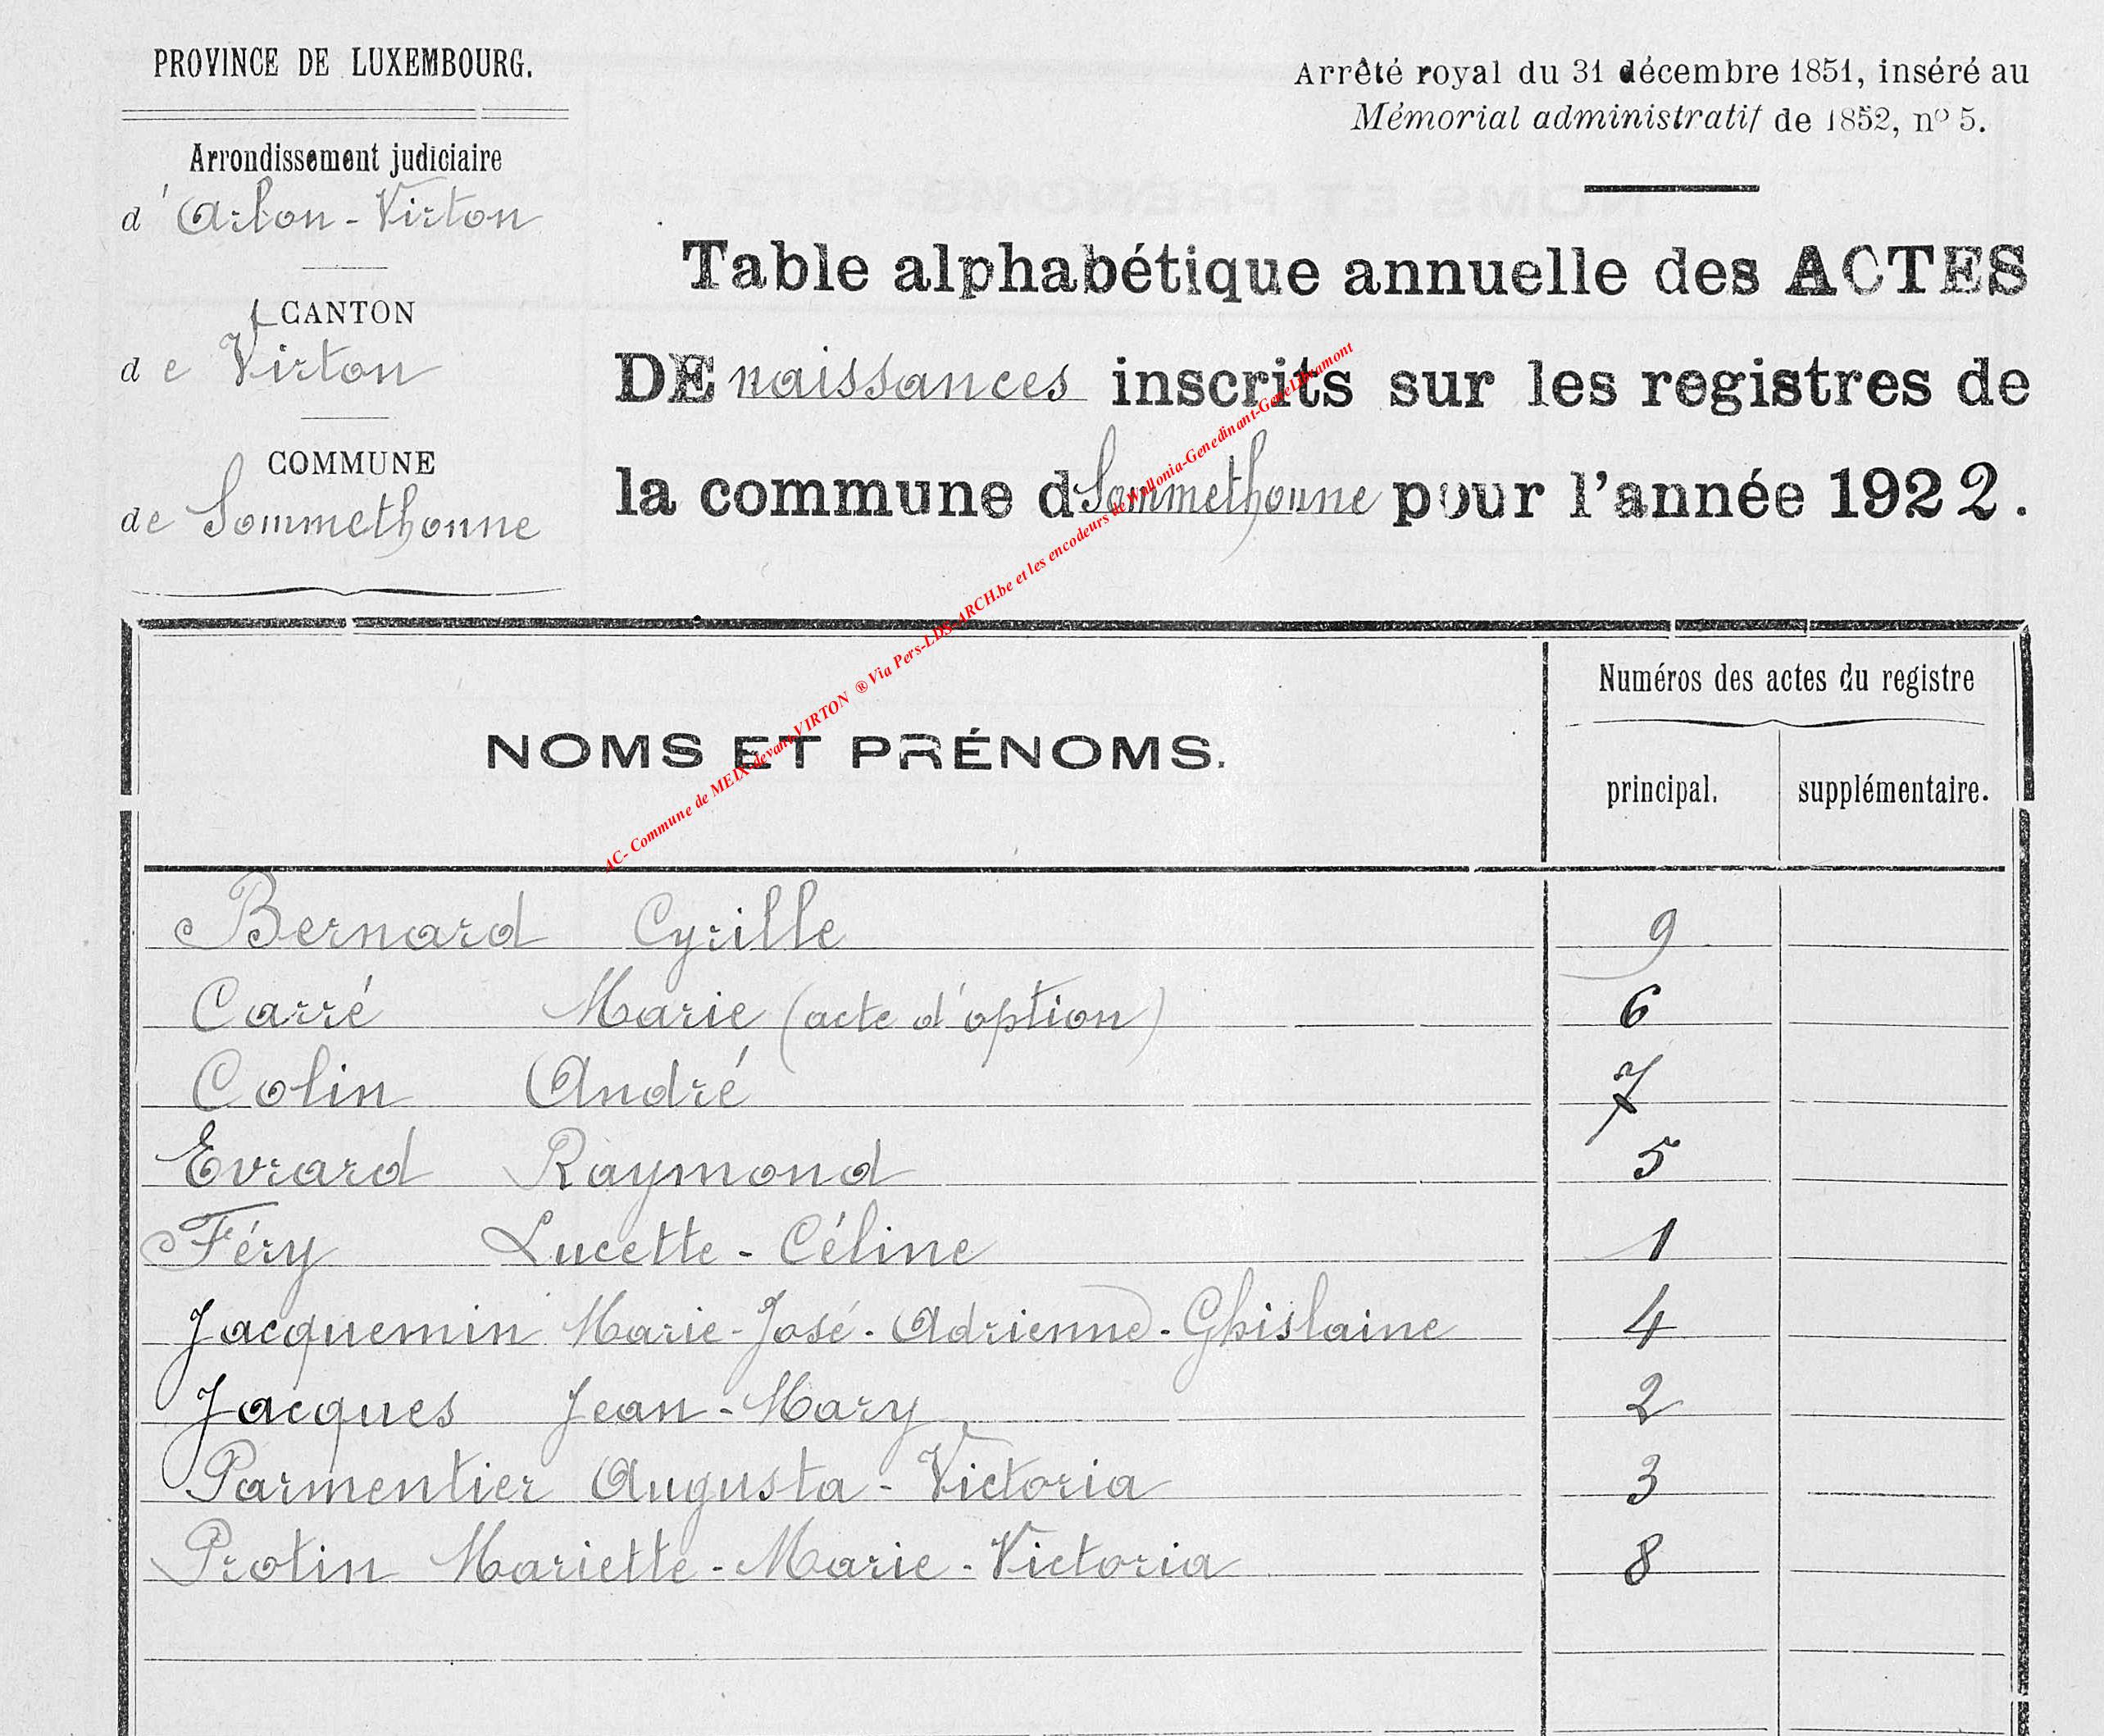 PROVINCE DE LUXEMBOURG.
Arrondissement judiciaire
d'Arlon-Virton
CANTON
de Virton
COMMUNE
de Sommethonne
Arrêté royal du 31 décembre 1851, inséré au
Mémorial administratif de 1852, nº 5.
Table alphabétique annuelle des ACTES
DE naissances inscrits sur les registres de
la commune d Sommethonne pour l'année 1922.
AC- Commune de MEIX-devant-VIRTON ® Via Pers-LDS-ARCH.be et les encodeurs de Wallonia-Genedinant-GeneLibramont
NOMS ET PRÉNOMS.
Numéros des actes du registre
principal. supplémentaire.
Bernard Cyrille 9
Carré Marie (acte d'option) 6
Colin André 7
Evrard Raymond 5
Féry Lucette-Céline 1
Jacquemin Marie-José-Adrienne-Ghislaine 4
Jacques Jean-Mary 2
Parmentier Augusta-Victoria 3
Protin Mariette-Marie-Victoria 8